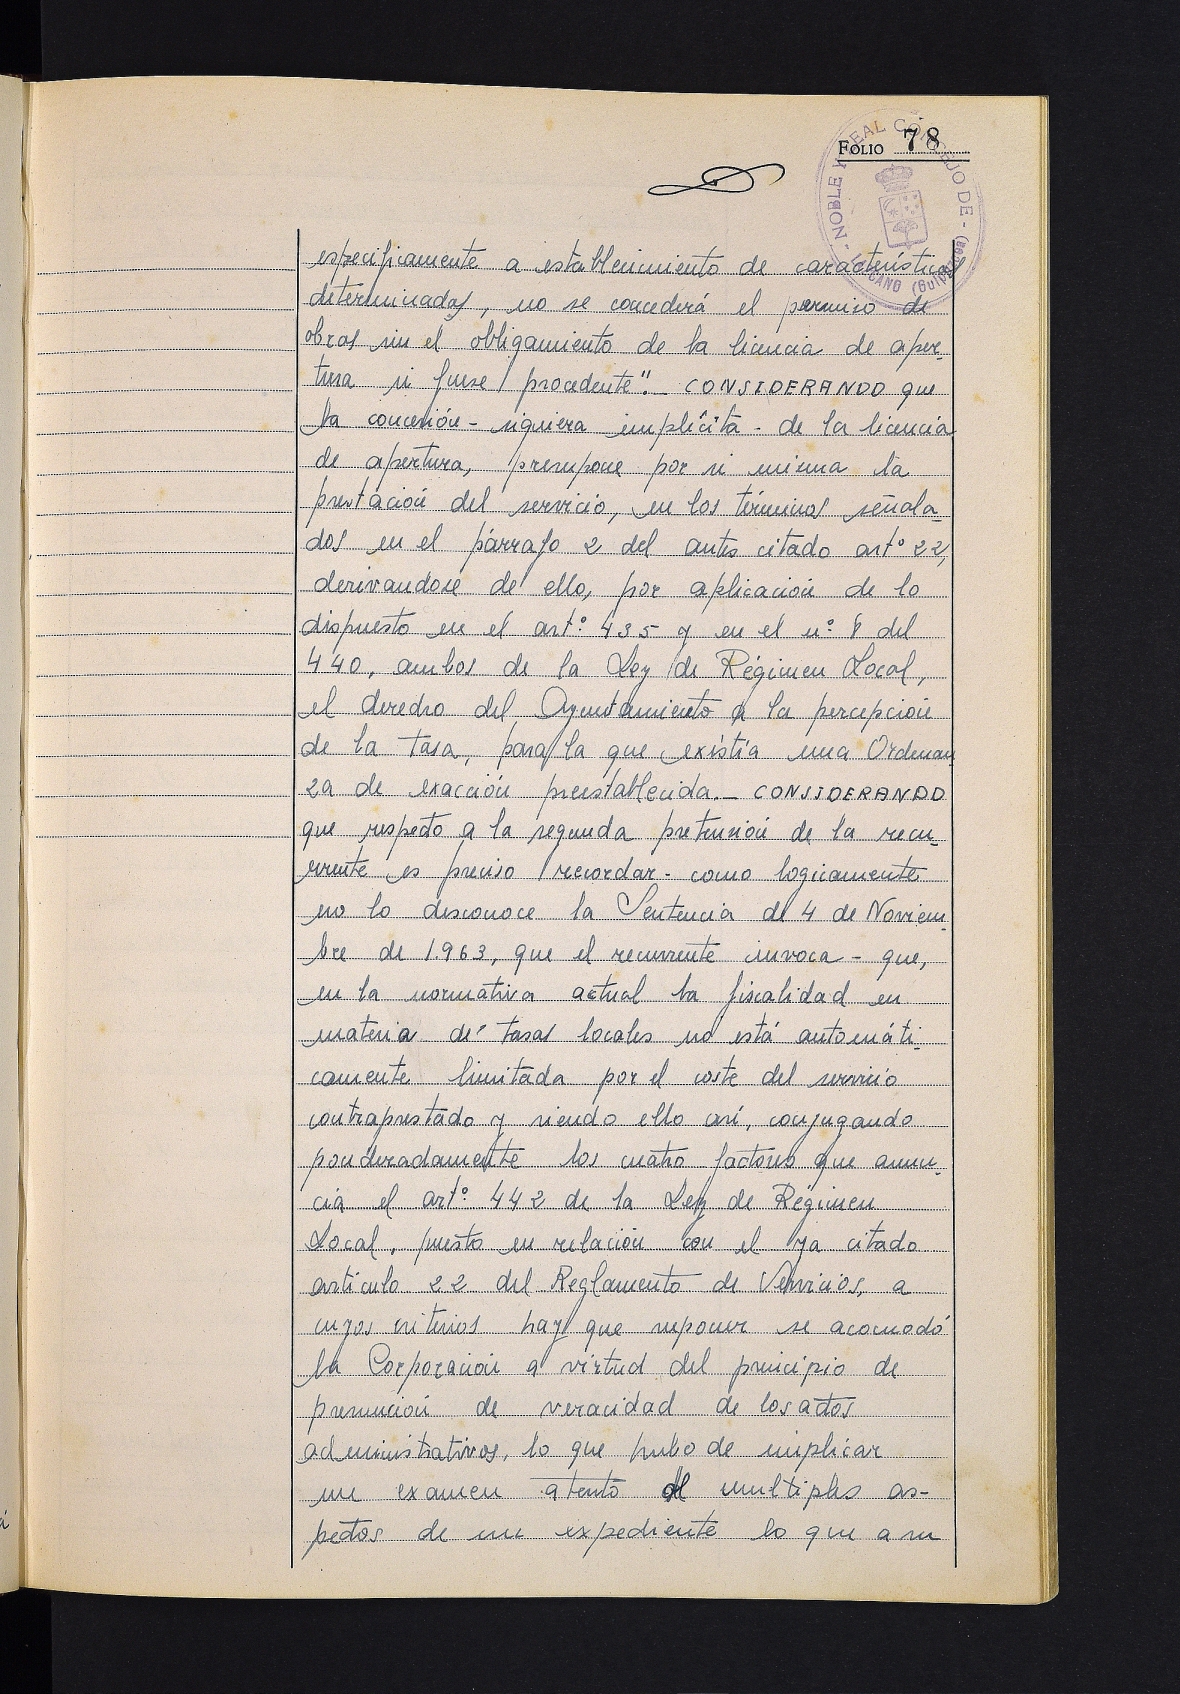 FOLIO 78
NOBLE Y REAL CONCEJO DE
CANO (Guipúzcoa)
especificamente a establecimiento de característica
determinados, no se concederá el permiso de
obras sin el obligamiento de la licencia de aper-
tura si fuese procedente".- CONSIDERANDO que
la concesión - siquiera implícita - de la licencia
de apertura, presupone por si misma la
prestación del servicio, en los términos señala-
dos en el párrafo 2 del antes citado artº 22,
derivandose de ello, por aplicación de lo
dispuesto en el artº 435 y en el nº 8 del
440, ambos de la Ley de Régimen Local,
el derecho del Ayuntamiento a la percepción
de la tasa, para la que existía una Ordenan
za de exacción preestablecida.- CONSIDERANDO
que respecto a la segunda pretensión de la recu-
rrente es preciso recordar - como logicamente
no lo desconoce la Sentencia de 4 de Noviem-
bre de 1.963, que el recurrente invoca - que,
en la normativa actual la fiscalidad en
materia de tasas locales no está automáti-
camente limitada por el coste del servicio
contraprestado y siendo ello así, conjugando
ponderadamente los cuatro factores que anun-
cia el artº 442 de la Ley de Régimen
Local, puesto en relación con el ya citado
artículo 22 del Reglamento de Servicios, a
cuyos criterios hay que suponer se acomodó
la Corporación a virtud del principio de
presunción de veracidad de los actos
administrativos, lo que hubo de implicar
un examen atento de multiples as-
pectos de un expediente lo que a su